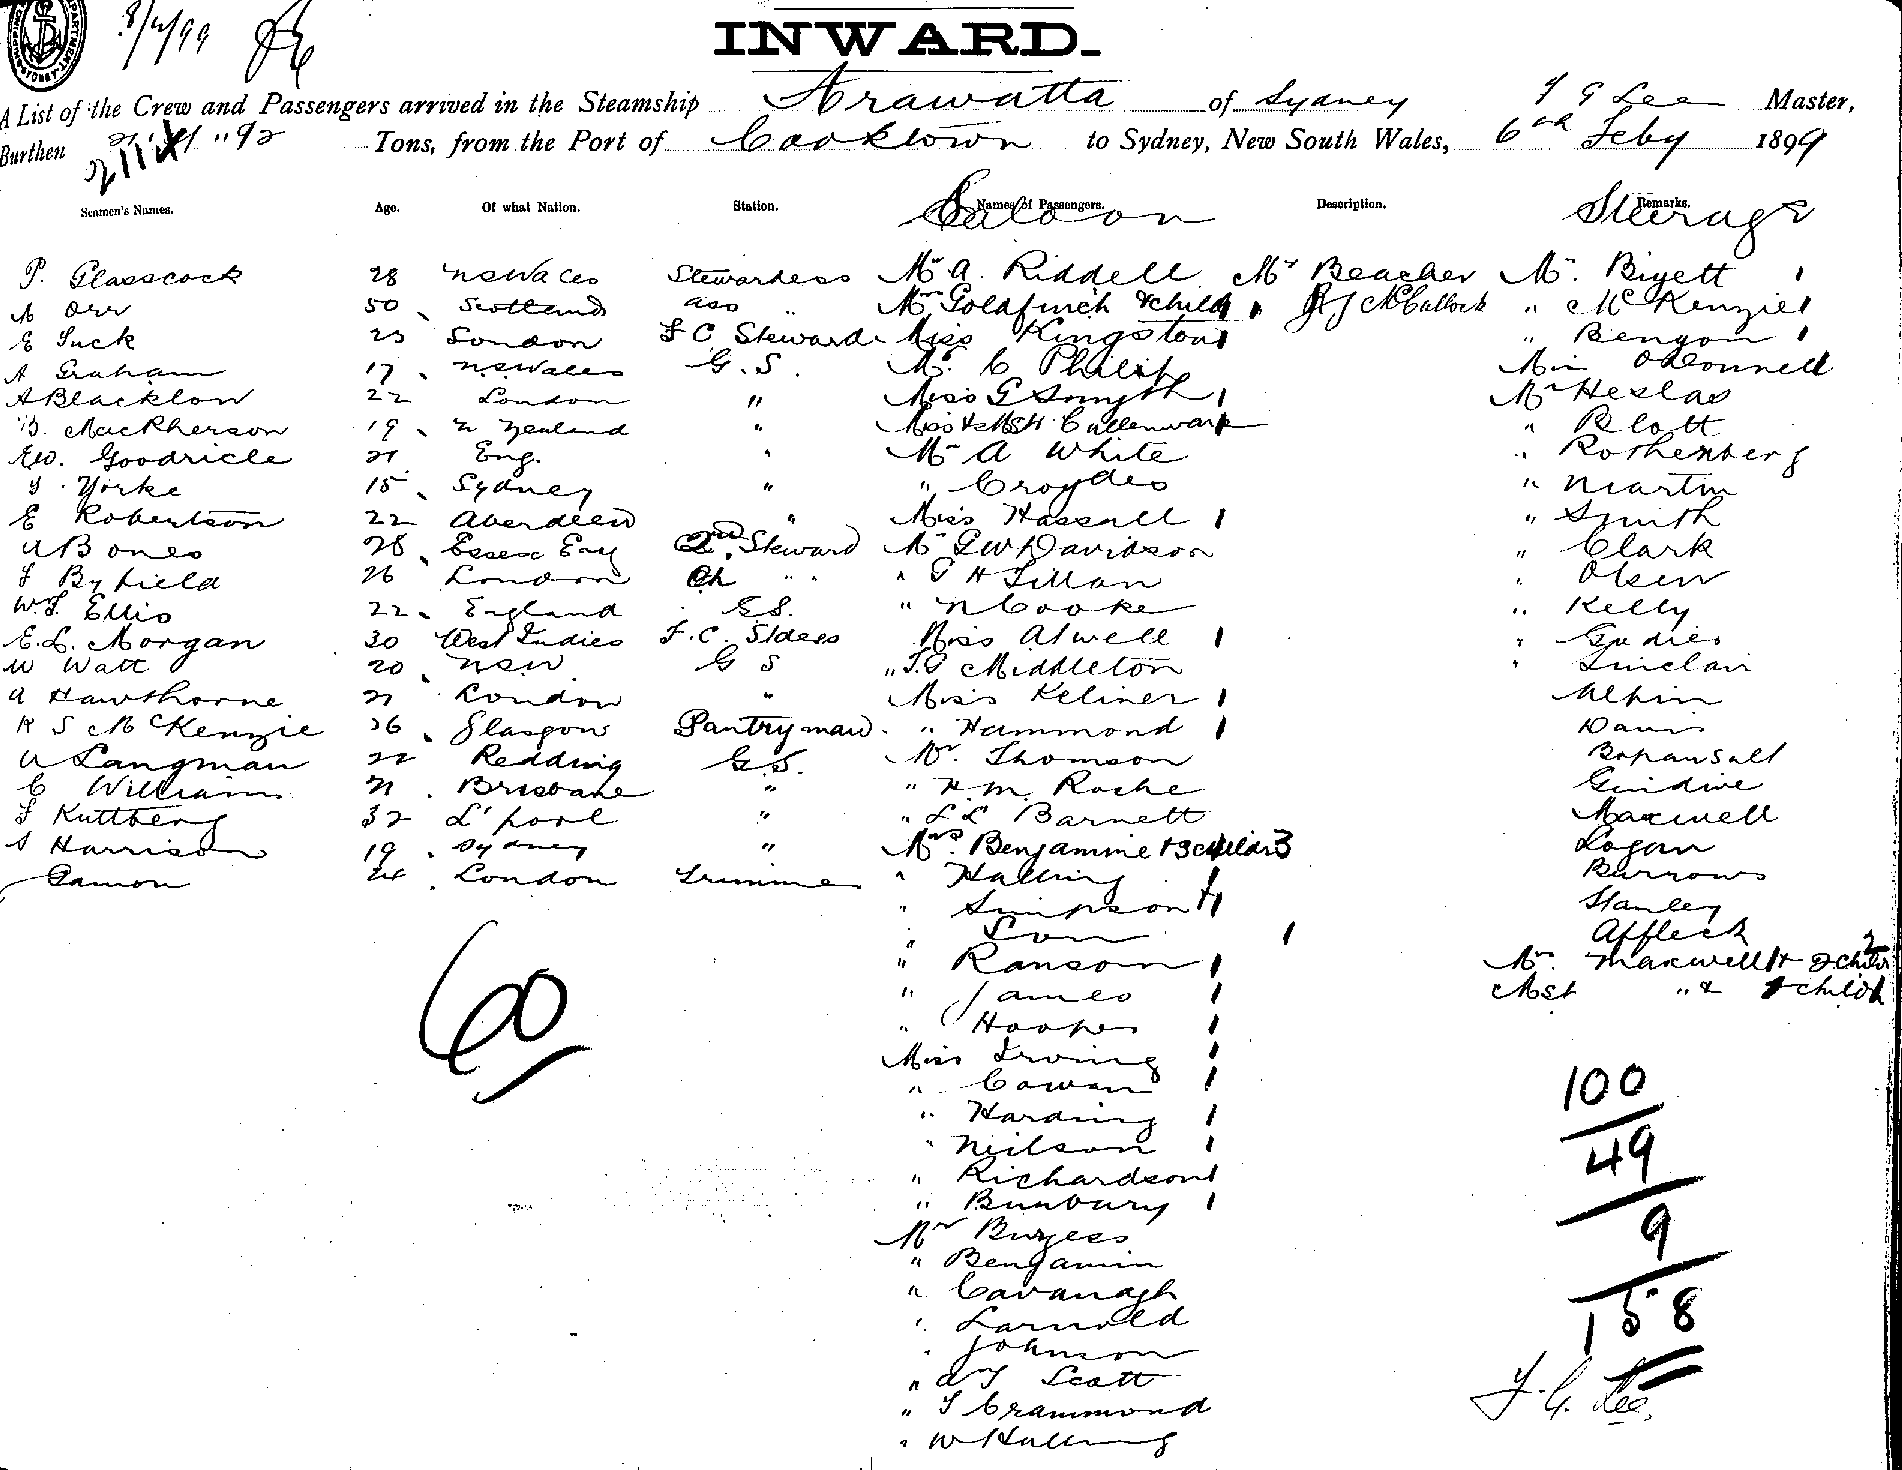 8/2/99
INWARD.
A List of the Crew and Passengers arrived in the Steamship Arawatta of Sydney T G Lee Master,
Burthen Tons, from the Port of Cooktown to Sydney, New South Wales, 6th Feby 1899
Seamen's Names. Age. Of what Nation. Station. Names of Passengers. Description. Remarks.
Saloon Steerage
P. Glasscock 28 NSWales Stewardess Mr A. Riddell Mr Beacher Mr. Bigett 1
A Orr 50 Scotland ass " Mrs Goldfinch & child 1 McCullock " McKenzie 1
E Tuck 23 London F C Steward Miss Kingston 1 " Benyon 1
A Graham 17 N.S.Wales G.S. Mr. C Philip Miss O'Connell
A Blacklow 22 London " Miss G Smyth 1 Mr Heslas
B. MacKherson 19 N Zealand " Miss Cullenward " Blott
EW. Goodricle 21 Eng. " Mr A White " Rothenberg
Yorke 15 Sydney " " Croydes " Martin
E Robertson 22 Aberdeen " Miss Hassall 1 " Smith
A Bones 28 Essex Eng 2nd Steward Mr G W Davidson " Clark
F Byfield 26 London Ch " " " G H Lillan " Olsen
W.F. Ellis 22 England G.S. " N Cooke " Kelly
E.L. Morgan 30 West Indies F.C. Stdess Miss Atwell 1 " Gudies
W Watt 20 NSW G S " T.G Middleton " Sinclair
A Hawthorne 21 London " Miss Keliner 1 Alpin
R S McKenzie 26 Glasgow Pantryman " Hammond 1 Davis
A Langman 22 Redding G.S. Mr. Thomson
C Williams 21 Brisbane " " H.M. Roche
F Kuttberg 32 L'pool " " L L Barnett Maxwell
S Harrison 19 Sydney " Mrs. Benjamine & 3 childr 3 Logan
Gamon 24 London Trimmer " Halling 1 Burrows
" Simpson 1 Stanley
" 1 Affleck
" Ranson 1 Mr. Maxwell & 2 childr 2
" James 1 " & child
" Hooper 1
Miss Irving 1
" Cowan 1
" Harding 1
" Neilson 1
" Richardson 1
" Bunbury 1
Mr Burgess
" Benjamin
" Cavanagh
" Larnold
" Johnson
" Scott
" T Crammond
" W Halling
60
100
49
9
158
T. G. Lee